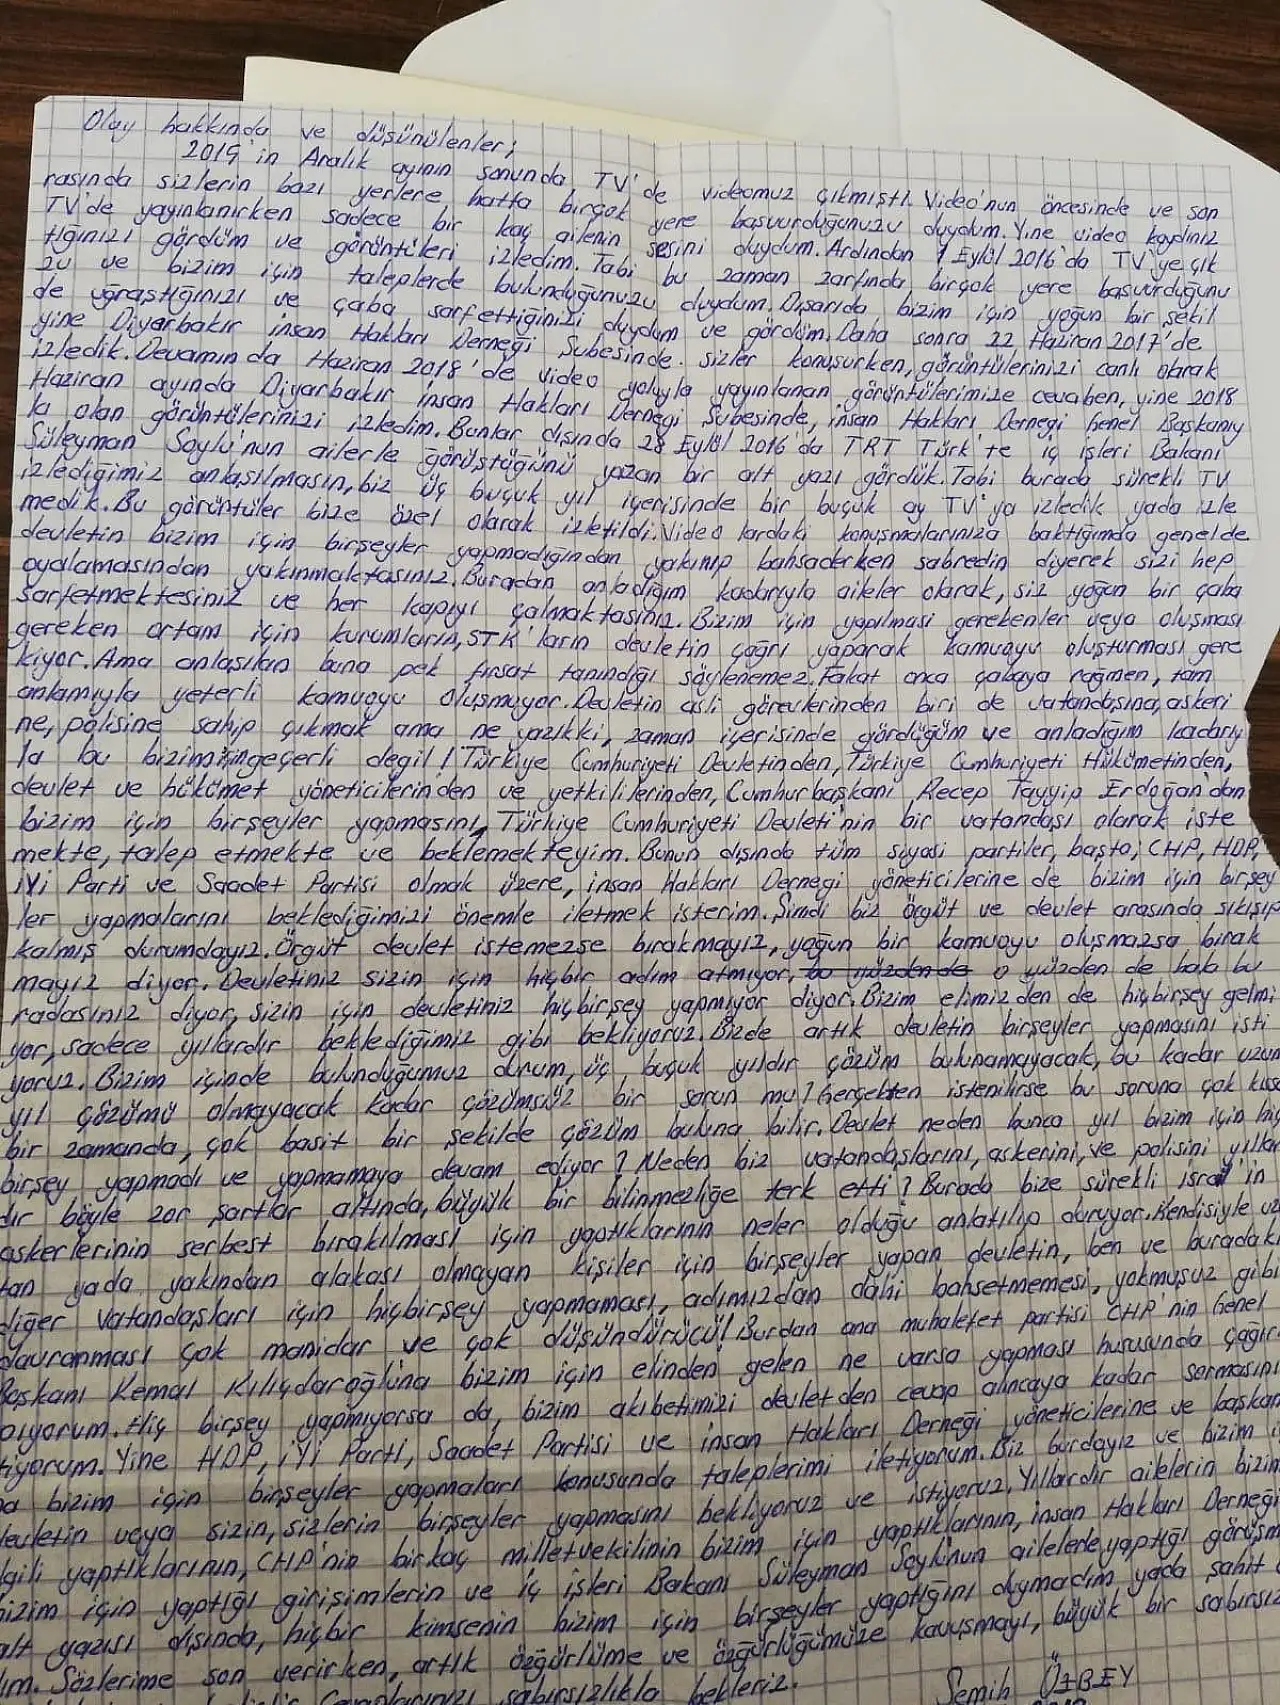 Olay hakkında ve düşünülenler;
2015'in Aralık ayının sonunda TV'de videomuz çıkmıştı. Video'nun öncesinde ve son
rasında sizlerin bazı yerlere, hatta birçok yere başvurduğunuzu duydum. Yine video kaydınız
TV'de yayınlanırken sadece bir kaç ailenin sesini duydum. Ardından 1 Eylül 2016'da TV'ye çık
tığınızı gördüm ve görüntüleri izledim. Tabi bu zaman zarfında, birçok yere başvurduğunu
zu ve bizim için taleplerde bulunduğunuzu duydum. Dışarıda bizim için yoğun bir şekil
de uğraştığınızı ve çaba sarfettiğinizi duydum ve gördüm. Daha sonra 22 Haziran 2017'de
yine Diyarbakır İnsan Hakları Derneği Şubesinde sizler konuşurken, görüntülerinizi canlı olarak
izledik. Devamında Haziran 2018'de video yoluyla yayınlanan görüntülerimize cevaben, yine 2018
Haziran ayında Diyarbakır İnsan Hakları Dernegi Şubesinde, İnsan Hakları Dernegi Genel Başkanıy
la olan görüntülerinizi izledim. Bunlar dışında 28 Eylül 2016'da TRT Türk'te iç işleri Bakanı
Süleyman Soylu'nun ailerle görüştüğünü yazan bir alt yazı gördük. Tabi burada sürekli TV
izlediğimiz anlaşılmasın, biz üç buçuk yıl içerisinde bir buçuk ay TV'ya izledik yada izle
medik. Bu görüntüler bize özel olarak izletildi. Video lardaki konuşmalarınıza baktığımda genelde
devletin bizim için birşeyler yapmadığından yakınıp bahsederken sabredin diyerek sizi hep
oyalamasından yakınmaktasınız. Buradan anladığım kadarıyla aileler olarak, siz yoğun bir çaba
sarfetmektesiniz ve her kapıyı çalmaktasınız. Bizim için yapılması gerekenler veya oluşması
gereken ortam için kurumların, STK'ların devletin çağrı yaparak kamuoyu oluşturması gere
kiyor. Ama anlaşılan buna pek fırsat tanındığı söylenemez. Fakat onca çabaya rağmen, tam
anlamıyla yeterli kamuoyu oluşmuyor. Devletin asli görevlerinden biri de vatandaşına, askeri
ne, polisine sahip çıkmak ama ne yazıkki, zaman içerisinde gördüğüm ve anladığım kadarıy
la bu bizim için geçerli degil! Türkiye Cumhuriyeti Devletinden, Türkiye Cumhuriyeti Hükümetinden,
devlet ve hükümet yöneticilerinden ve yetkililerinden, Cumhurbaşkanı Recep Tayyip Erdoğan'dan
bizim için birşeyler yapmasını, Türkiye Cumhuriyeti Devleti'nin bir vatandaşı olarak iste
mekte, talep etmekte ve beklemekteyim. Bunun dışında tüm siyasi partiler, başta; CHP, HDP,
İYİ Parti ve Saadet Partisi olmak üzere, İnsan Hakları Dernegi yöneticilerine de bizim için birşey
ler yapmalarını beklediğimizi önemle iletmek isterim. Şimdi biz örgüt ve devlet arasında sıkışıp
kalmış durumdayız. Örgüt devlet istemezse bırakmayız, yoğun bir kamuoyu oluşmazsa bırak
mayız diyor. Devletiniz sizin için hiçbir adım atmıyor, bu yüzden de o yüzden de hala bu
radasınız diyor, sizin için devletiniz hiçbirşey yapmıyor diyor. Bizim elimizden de hiçbirşey gelmi
yor, sadece yıllardır beklediğimiz gibi bekliyoruz. Bizde artık devletin birşeyler yapmasını isti
yoruz. Bizim içinde bulunduğumuz durum, üç buçuk yıldır çözüm bulunamayacak, bu kadar uzun
yıl çözümü olmayacak kadar çözümsüz bir sorun mu? Gerçekten istenilirse bu soruna çok kısa
bir zamanda, çok basit bir şekilde çözüm buluna bilir. Devlet neden bunca yıl bizim için hiç
birşey yapmadı ve yapmamaya devam ediyor? Neden biz vatandaşlarını, askerini, ve polisini yıllar
dır böyle zor şartlar altında, büyük bir bilinmezliğe terk etti? Burada bize sürekli israil'in
askerlerinin serbest bırakılması için yaptıklarının neler olduğu anlatılıp duruyor. Kendisiyle uzak
tan yada yakından alakası olmayan kişiler için birşeyler yapan devletin, ben ve buradaki
diğer vatandaşları için hiçbirşey yapmaması, adımızdan dahi bahsetmemesi, yokmuşuz gibi
davranması çok manidar ve çok düşündürücü! Burdan ana muhalefet partisi CHP'nin Genel
Başkanı Kemal Kılıçdaroğluna bizim için elinden gelen ne varsa yapması hususunda çağırı
yorum. Hiç birşey yapmıyorsa da, bizim akıbetimizi devletden cevap alıncaya kadar sormasını
tiyorum. Yine HDP, İYİ Parti, Saadet Partisi ve İnsan Hakları Derneği yöneticilerine ve başkan
na bizim için birşeyler yapmaları konusunda taleplerimi iletiyorum. Biz burdayız ve bizim
devletin veya sizin, sizlerin birşeyler yapmasını bekliyoruz ve istiyoruz. Yıllardır ailelerin bizim
ilgili yaptıklarının, CHP'nin birkaç milletvekilinin bizim için yaptıklarının, İnsan Hakları Derneği
bizim için yaptığı girişimlerin ve iç işleri Bakanı Süleyman Soylu'nun ailelerle yaptığı görüşme
alt yazısı dışında, hiçbir kimsenin bizim için birşeyler yaptığını duymadım yada şahit
dım. Sözlerime son verirken, artık özgürlüme ve özgürlüğümüze kavuşmayı, büyük bir sabırsız
sabırsızlıkla bekleriz.
Semih ÖZBEY